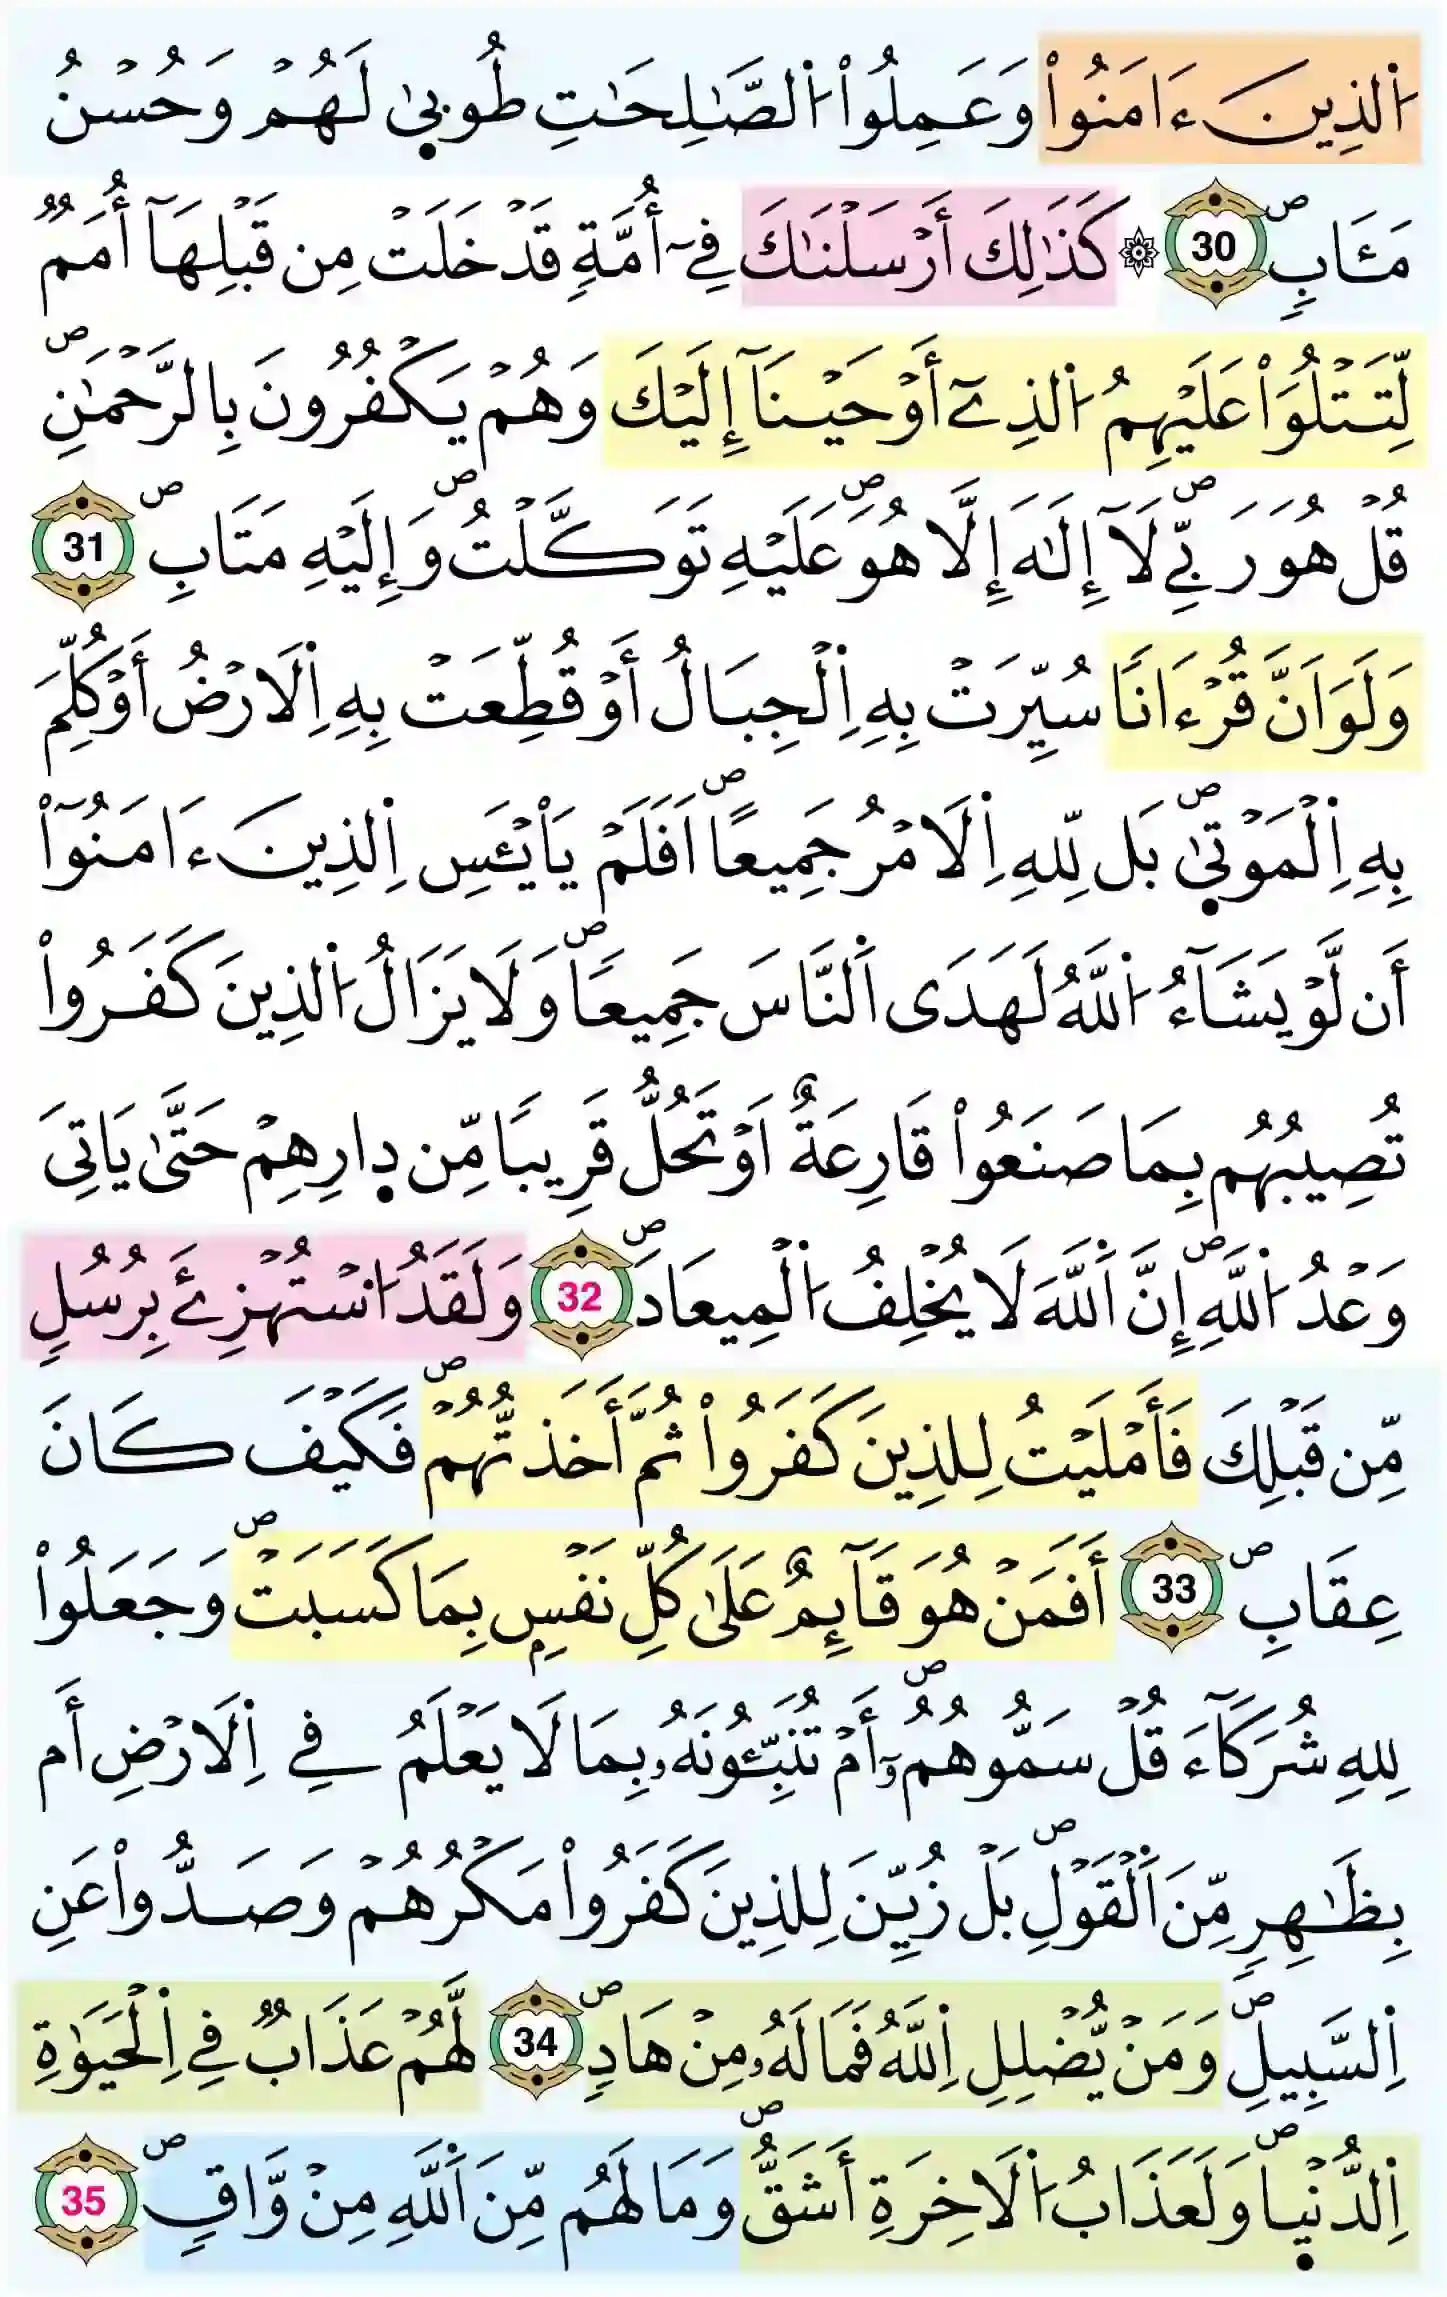 اَ۬لذِينَ ءَامَنُواْ وَعَمِلُواْ اُ۬لصَّٰلِحَٰتِ طُوب۪ىٰ لَهُمْ وَحُسْنُ
مَـَٔابٖۖ 30 ۞ كَذَٰلِكَ أَرْسَلْنَٰكَ فِےٓ أُمَّةٖ قَدْ خَلَتْ مِن قَبْلِهَآ أُمَمٞ
لِّتَتْلُوَاْ عَلَيْهِمُ اُ۬لذِےٓ أَوْحَيْنَآ إِلَيْكَ وَهُمْ يَكْفُرُونَ بِالرَّحْمَٰنِۖ
قُلْ هُوَ رَبِّے لَآ إِلَٰهَ إِلَّا هُوَۖ عَلَيْهِ تَوَكَّلْتُۖ وَإِلَيْهِ مَتَابِۖ 31
وَلَوَ اَنَّ قُرْءَاناٗ سُيِّرَتْ بِهِ اِ۬لْجِبَالُ أَوْ قُطِّعَتْ بِهِ اِ۬لَارْضُ أَوْ كُلِّمَ
بِهِ اِ۬لْمَوْت۪ىٰۖ بَل لِّلهِ اِ۬لَامْرُ جَمِيعاًۖ اَفَلَمْ يَاْيْـَٔسِ اِ۬لذِينَ ءَامَنُوٓاْ
أَن لَّوْ يَشَآءُ اُ۬للَّهُ لَهَدَى اَ۬لنَّاسَ جَمِيعاٗۖ وَلَا يَزَالُ اُ۬لذِينَ كَفَرُواْ
تُصِيبُهُم بِمَا صَنَعُواْ قَارِعَةٌ اَوْ تَحُلُّ قَرِيباٗ مِّن د۪ارِهِمْ حَتَّىٰ يَاتِيَ
وَعْدُ اُ۬للَّهِۖ إِنَّ اَ۬للَّهَ لَا يُخْلِفُ اُ۬لْمِيعَادَۖ 32 وَلَقَدُ اُ۟سْتُهْزِۓَ بِرُسُلٖ
مِّن قَبْلِكَ فَأَمْلَيْتُ لِلذِينَ كَفَرُواْ ثُمَّ أَخَذتُّهُمْۖ فَكَيْفَ كَانَ
عِقَابِۖ 33 أَفَمَنْ هُوَ قَآئِمٌ عَلَىٰ كُلِّ نَفْسِۢ بِمَا كَسَبَتْۖ وَجَعَلُواْ
لِلهِ شُرَكَآءَ قُلْ سَمُّوهُمُۥٓۖ أَمْ تُنَبِّـُٔونَهُۥ بِمَا لَا يَعْلَمُ فِے اِ۬لَارْضِ أَم
بِظَٰهِرٖ مِّنَ اَ۬لْقَوْلِۖ بَلْ زُيِّنَ لِلذِينَ كَفَرُواْ مَكْرُهُمْ وَصَدُّواْ عَنِ
اِ۬لسَّبِيلِۖ وَمَنْ يُّضْلِلِ اِ۬للَّهُ فَمَا لَهُۥ مِنْ هَادٖۖ 34 لَّهُمْ عَذَابٞ فِے اِ۬لْحَيَوٰةِ
اِ۬لدُّنْي۪اۖ وَلَعَذَابُ اُ۬لَاخِرَةِ أَشَقُّۖ وَمَا لَهُم مِّنَ اَ۬للَّهِ مِنْ وَّاقٖۖ 35